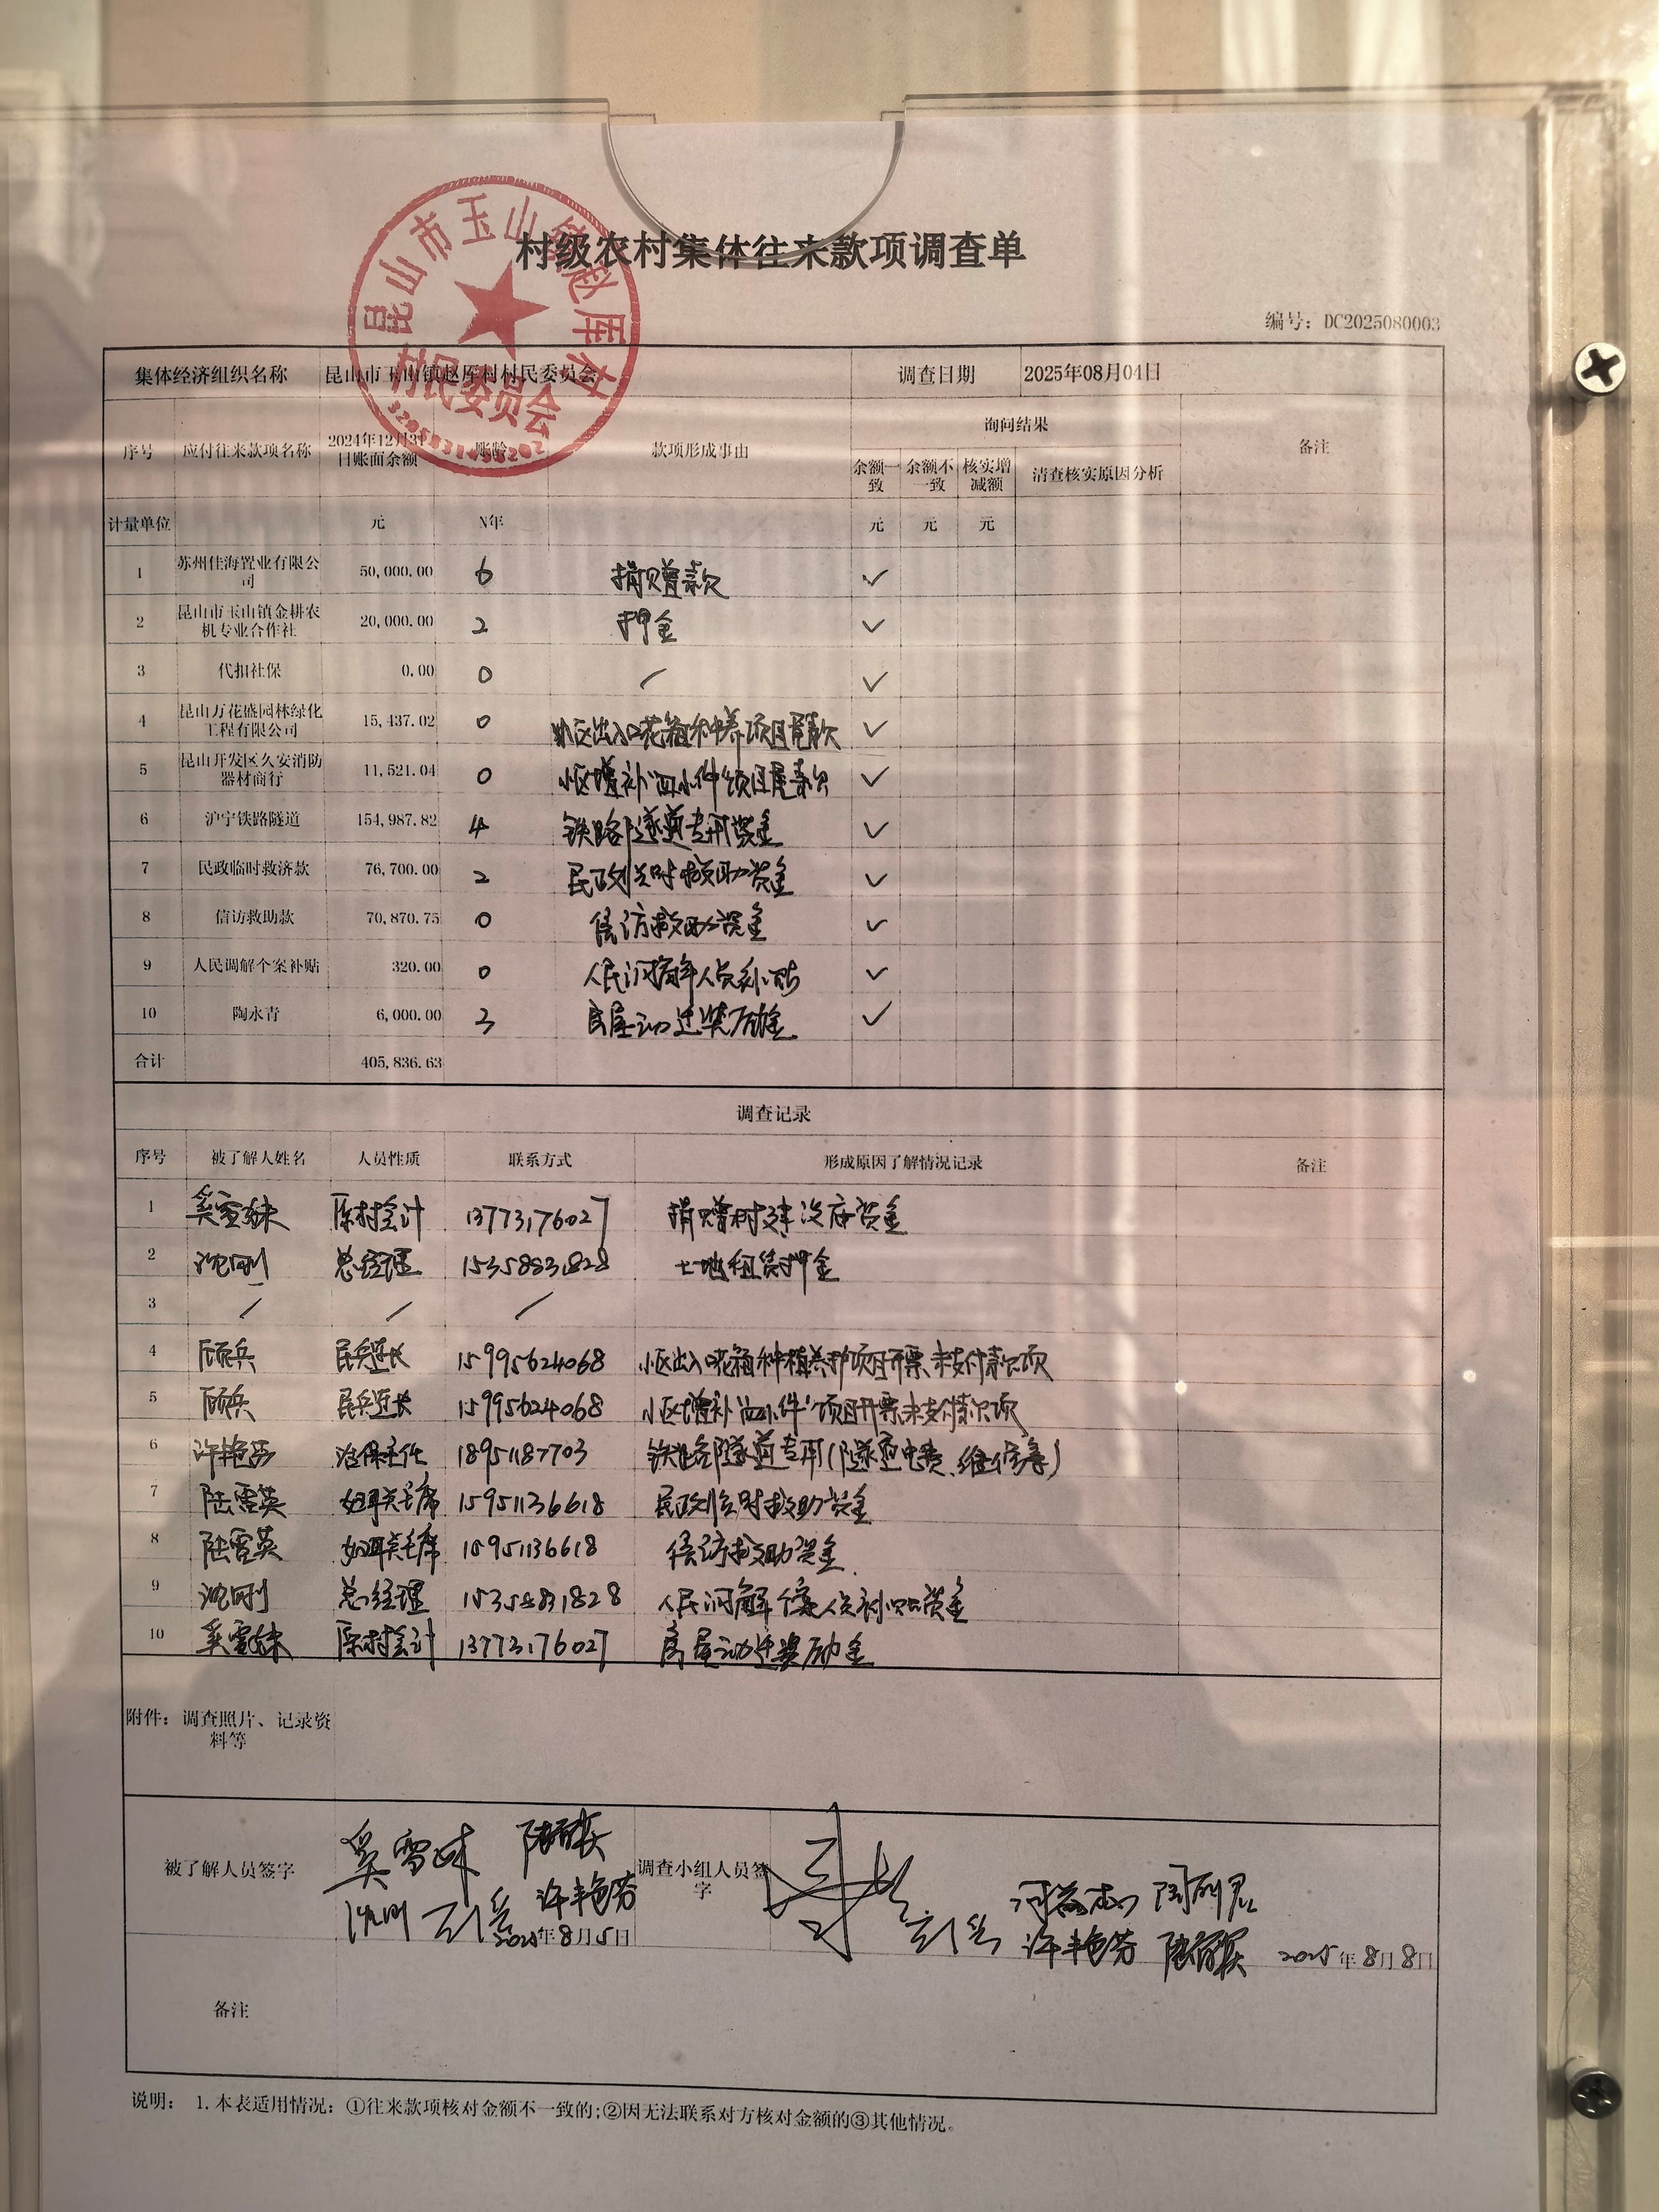 村级农村集体往来款项调查单
昆山市玉山镇赵厍村
村民委员会
编号：DC2025080003
集体经济组织名称 昆山市玉山镇赵厍村村民委员会 调查日期 2025年08月04日
序号 应付往来款项名称 2024年12月31日账面余额 账龄 款项形成事由 询问结果 备注
余额一致 余额不一致 核实增减额 清查核实原因分析
计量单位 元 N年 元 元 元
1 苏州佳海置业有限公司 50,000.00 6 捐赠款 ✓
2 昆山市玉山镇金耕农机专业合作社 20,000.00 2 押金 ✓
3 代扣社保 0.00 0 / ✓
4 昆山万花盛园林绿化工程有限公司 15,437.02 0 小区出入口花箱种养项目尾款 ✓
5 昆山开发区久安消防器材商行 11,521.04 0 小区增补“四小件”项目尾款 ✓
6 沪宁铁路隧道 154,987.82 4 铁路隧道专用资金 ✓
7 民政临时救济款 76,700.00 2 民政临时救助资金 ✓
8 信访救助款 70,870.75 0 信访救助资金 ✓
9 人民调解个案补贴 320.00 0 人民调解人员补贴 ✓
10 陶永青 6,000.00 3 房屋动迁奖励金 ✓
合计 405,836.63
调查记录
序号 被了解人姓名 人员性质 联系方式 形成原因了解情况记录 备注
1 奚雪妹 原村会计 13773176027 捐赠村建设资金
2 沈刚 总经理 15358831828 土地租赁押金
3 / / /
4 顾兵 民兵连长 15995624068 小区出入口花箱种植养护项目开票未支付款项
5 顾兵 民兵连长 15995624068 小区增补“四小件”项目开票未支付款项
6 许艳芬 治保主任 18951187703 铁路隧道专用(隧道电费、维修等)
7 陆雪英 妇联主席 15951136618 民政临时救助资金
8 陆雪英 妇联主席 15951136618 信访救助资金
9 沈刚 总经理 15358831828 人民调解个案人员补贴资金
10 奚雪妹 原村会计 13773176027 房屋动迁奖励金
附件：调查照片、记录资料等
被了解人员签字 奚雪妹 调查小组人员签字
沈刚 许艳芬 许艳芬
2025年8月5日 2025年8月8日
备注
说明： 1.本表适用情况：①往来款项核对金额不一致的;②因无法联系对方核对金额的③其他情况。